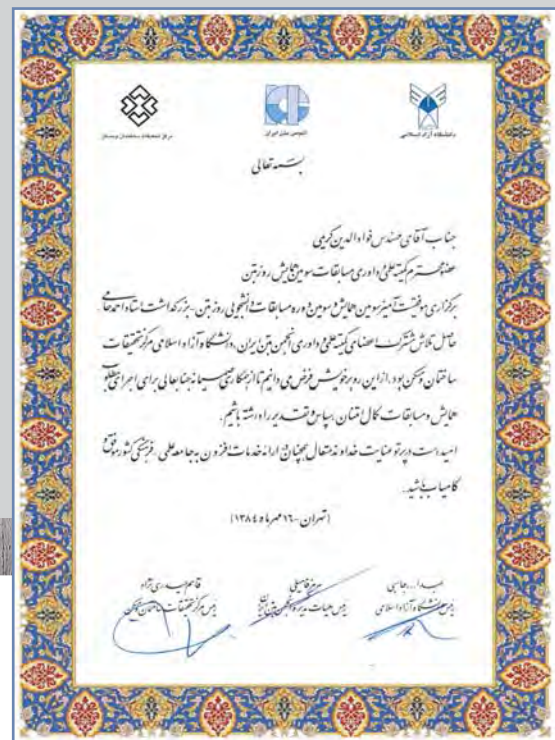 مرکز تحقیقات ساختمان و مسکن
انجمن بتن ایران
دانشگاه آزاد اسلامی
بسمه تعالی
جناب آقای مهندس فواد الدین کریمی
عضو محترم کمیته علمی و داوری مسابقات سومین همایش روز بتن
برگزاری موفقیت آمیز سومین همایش و سومین دوره مسابقات دانشجویی روز بتن - بزرگداشت استاد احمد حامی
حاصل تلاش مشترک اعضای کمیته علمی و داوری انجمن بتن ایران، دانشگاه آزاد اسلامی مرکز تحقیقات
ساختمان و مسکن بود. از این رو بر خویش فرض می دانیم تا از همکاری صمیمانه جنابعالی برای اجرای مطلوب
همایش و مسابقات کمال امتنان، سپاس و تقدیر را داشته باشیم.
امید است در پرتو عنایت خداوند متعال همچنان در ارائه خدمات افزون به جامعه علمی - فرهنگی کشور موفق و
کامیاب باشید.
(تهران - ۱۶ مهر ماه ۱۳۸۴)
عبدا... جاسبی
رئیس دانشگاه آزاد اسلامی
هرمز فامیلی
رئیس هیات مدیره انجمن بتن ایران
قاسم حیدری نژاد
رئیس مرکز تحقیقات ساختمان و مسکن